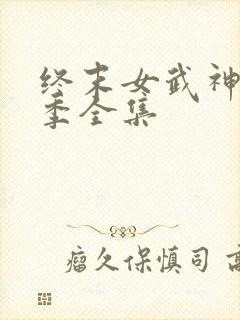 终末女武神
季全集
瘤久保慎司 高